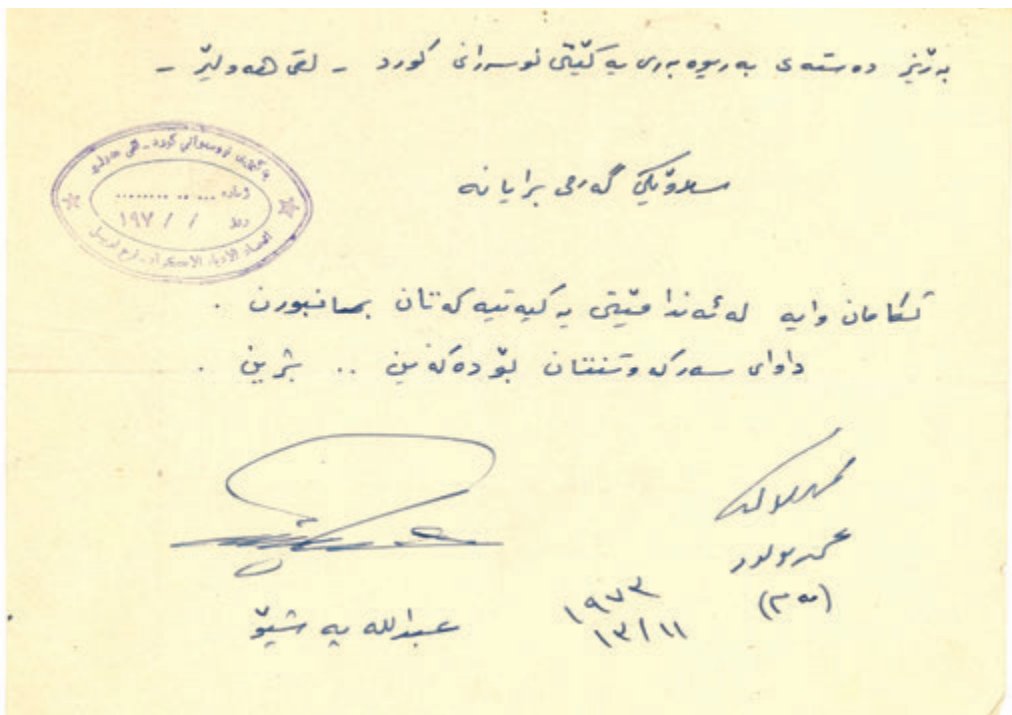 بەرێز دەستەی بەریوەبەری یەکێتی نوسەرانی کورد - لقی هەولێر -
یەکێتی نوسەرانی کورد - لقی هەولێر
ژمارە ... .. ........
روژ / / ١٩٧
اتحاد الادباء الاكراد - فرع اربيل
سلاوێکی گەرمی برایانە
تکامان وایە لە ئەندامێتی یەکیەتیەکەتان بمانبورن .
داوای سەرکەوتنتان بۆ دەکەین .. بژین .
محمد مولود
(مەم)
١٩٧٣
١٣/١١
عبدالله پەشێو